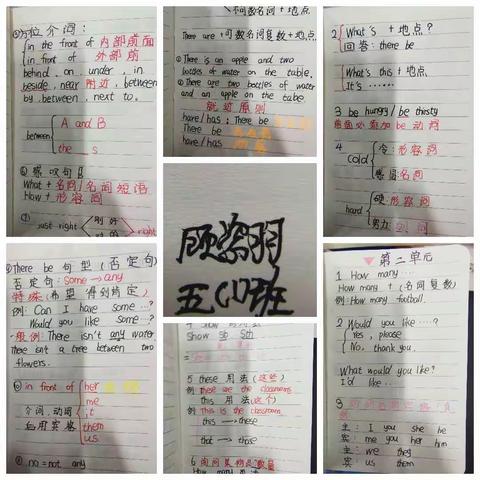 方位介词:
in the front of 内部前面
in front of 外部前
behind. on. under. in
beside, near 附近, between
by. between. next to.
between
A and B
the __s
感叹句
What + 名词/名词短语
How + 形容词
just right
不可数名词 + 地点
There are + 可数名词复数 + 地点
There is an apple and two
bottles of water on the table.
There are two bottles of water
and an apple on the table
就近原则
have/has: There be
There be
have/has
2
What's + 地点?
回答: there be
What's this + 地点
It's ......
3 be hungry / be thirsty
前面必须加 be 动词
4
cold
冷: 形容词
感冒: 名词
hard
硬: 形容词
努力: 副词
五(1)班
There be 句型(否定句)
否定句: some→any
特殊(希望得到肯定)
例: Can I have some...?
Would you like some...?
一般例: There isn't any water
There isn't a tree between two
flowers.
in front of
her
me
it
them
us
介词、动词
后用宾格
no = not any
Show sb sth
5 these 用法(这些)
例 these are the classrooms
this 用法(这个)
例 This is the classroom
this → these
that → those
6
How many
第二单元
1 How many...
How many + (名词复数)
例: How many football
2 Would you like ...?
Yes, please
No, thank you.
What would you like?
I'd like ...
3
主: I you she he
宾: me you her him
主: we they
宾: us them